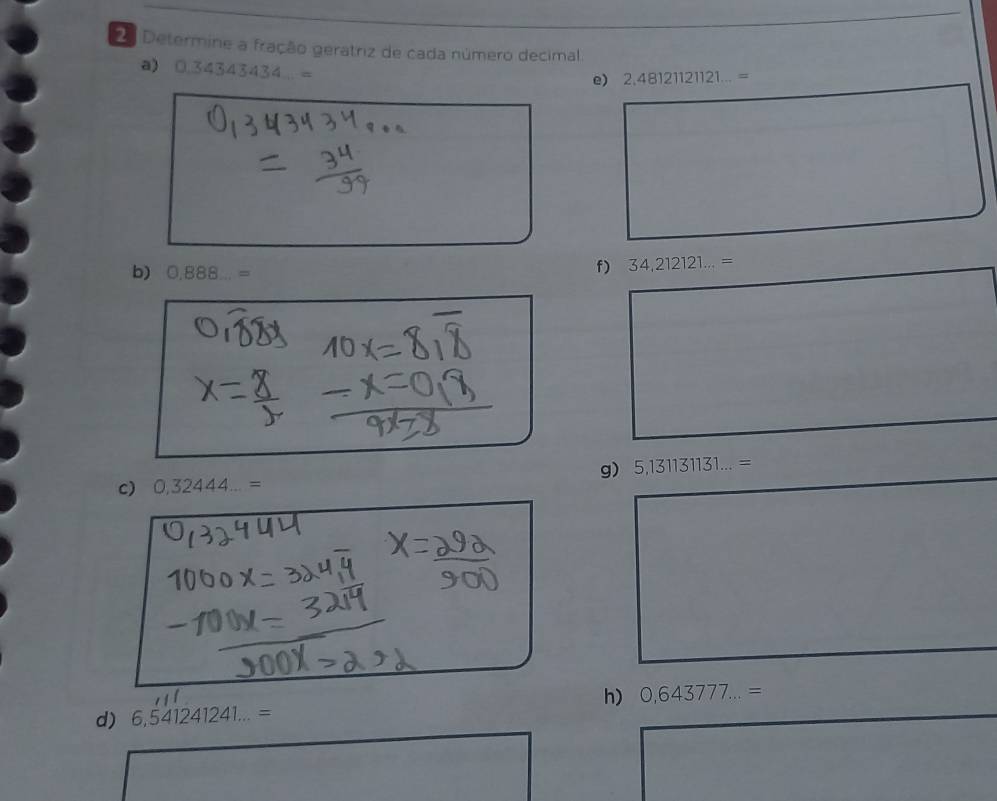 2 Determine a fração geratriz de cada número decimal.
a) 0,34343434... =
0,343434...
= 34/99
b) 0,888... =
0,888
x = 8/9
10x = 8,8
- x = 0,8
9x = 8
c) 0,32444... =
0,32444
1000x = 324,4
- 100x = 32,4
900x = 292
x = 292/900
d) 6,541241241... =
e) 2,48121121121... =
f) 34,212121... =
g) 5,131131131... =
h) 0,643777... =